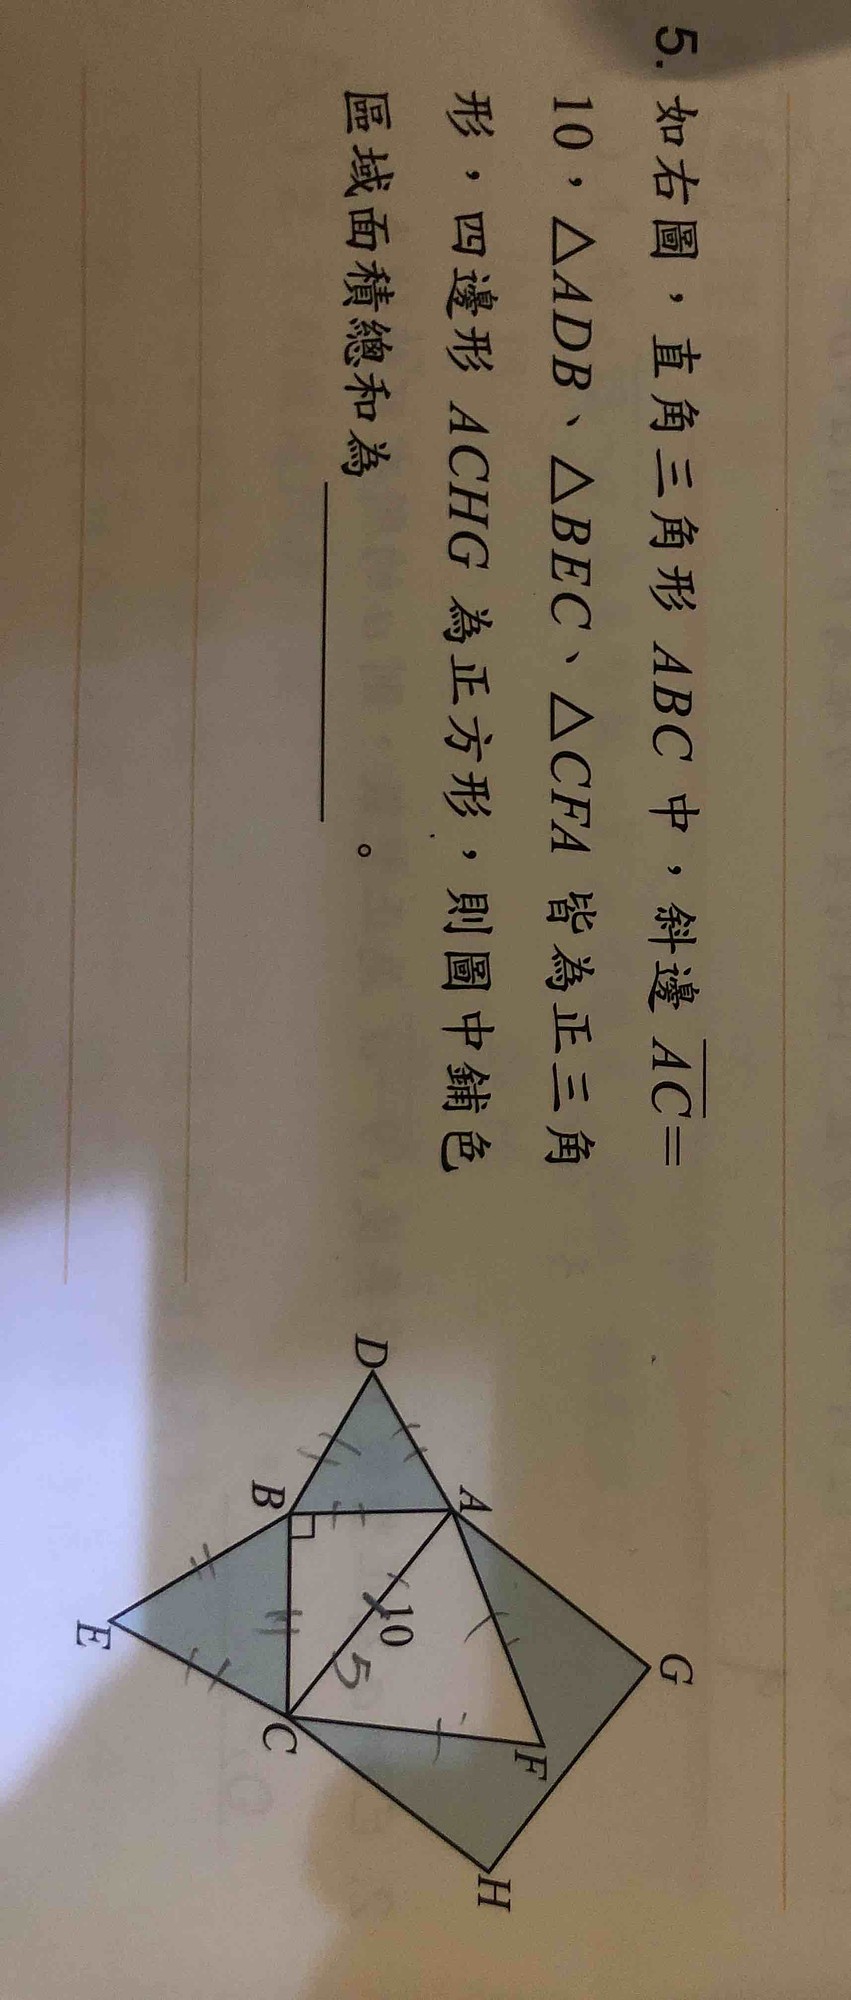 5. 如右圖，直角三角形 ABC 中，斜邊 AC=
10，△ADB、△BEC、△CFA 皆為正三角
形，四邊形 ACHG 為正方形，則圖中鋪色
區域面積總和為__________。
D
A
G
B
10
5
F
E
C
H